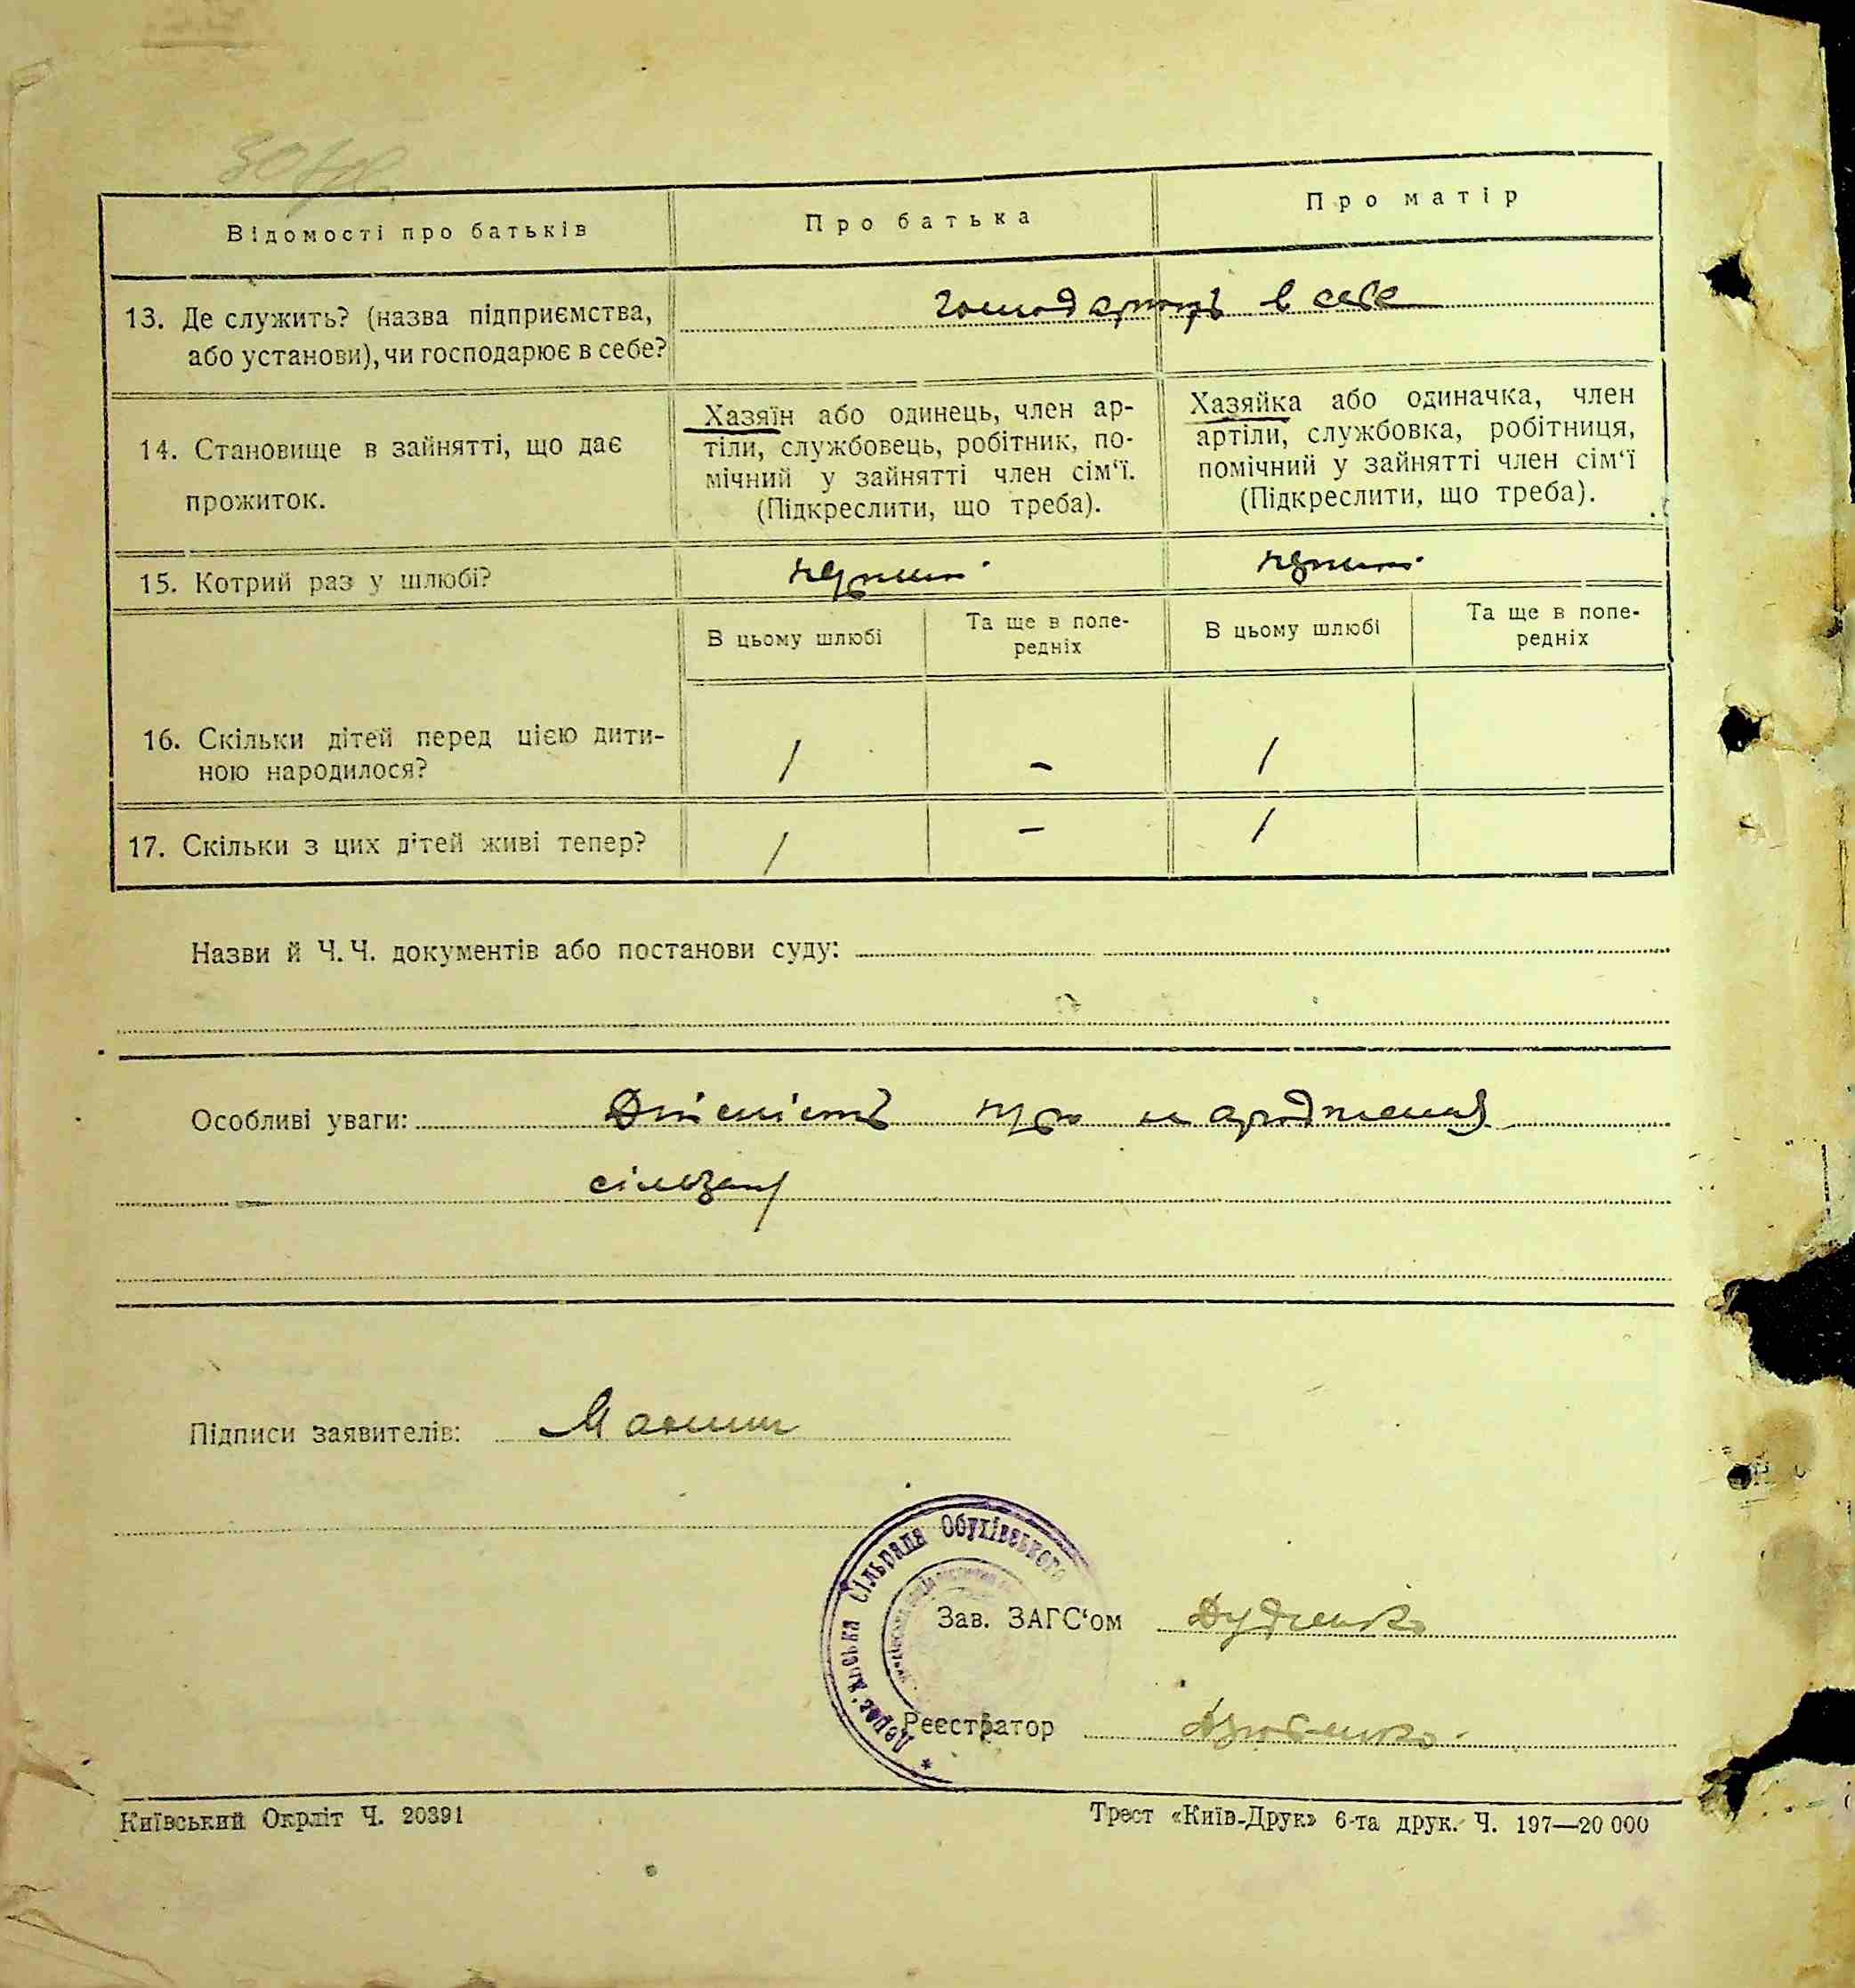 Відомості про батьків
Про батька
Про матір
13. Де служить? (назва підприємства,
або установи), чи господарює в себе?
господарюють в себе
14. Становище в зайнятті, що дає
прожиток.
Хазяїн або одинець, член ар-
тіли, службовець, робітник, по-
мічний у зайнятті член сім‘ї.
(Підкреслити, що треба).
Хазяйка або одиначка, член
артіли, службовка, робітниця,
помічний у зайнятті член сім‘ї
(Підкреслити, що треба).
15. Котрий раз у шлюбі?
перший
перший
В цьому шлюбі
Та ще в попе-
редніх
В цьому шлюбі
Та ще в попе-
редніх
16. Скільки дітей перед цією дити-
ною народилося?
1
-
1
17. Скільки з цих дітей живі тепер?
1
-
1
Назви й Ч. Ч. документів або постанови суду:
Особливі уваги: Дійсність про народження
Підписи заявителів:
Сільрада Обухівського
Зав. ЗАГС‘ом Дудченко
Реєстратор
Київський Окрліт Ч. 20391
Трест «Київ-Друк» 6-та друк. Ч. 197—20 000